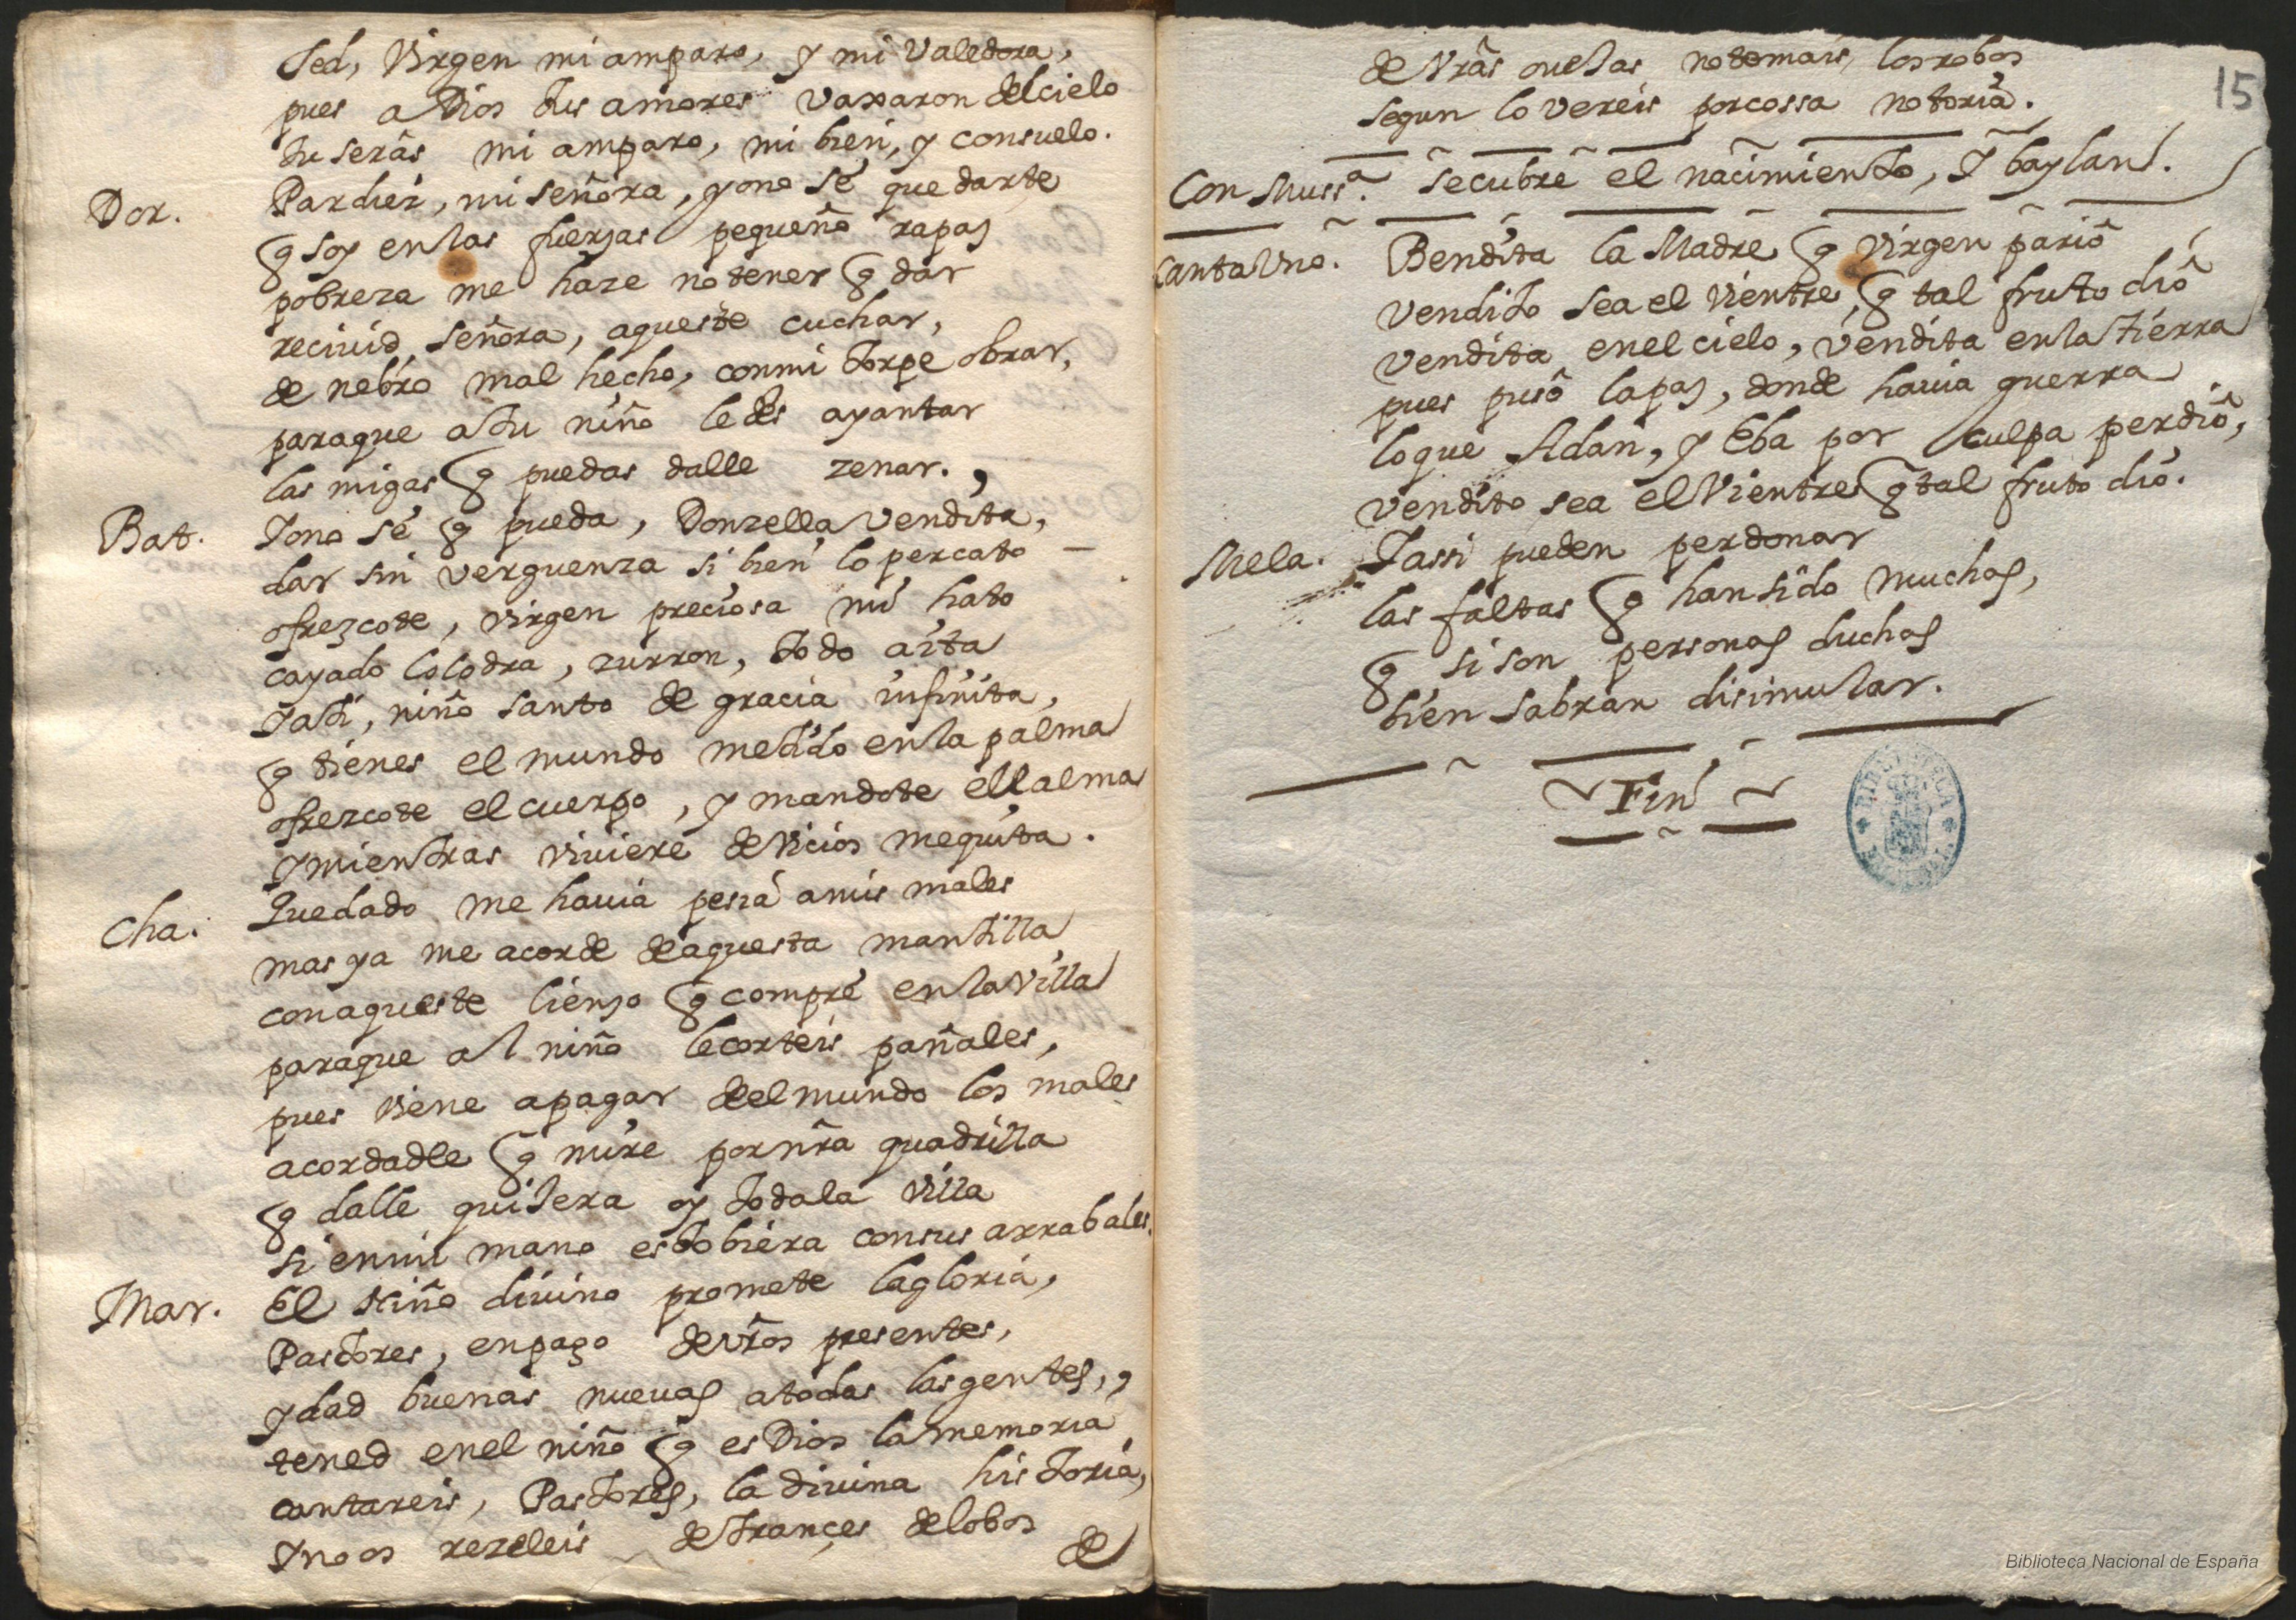 Sed, Virgen mi amparo, y mi Valedora,
pues a Dios tus amores vaxaron del cielo
tu serás mi amparo, mi bien, y consuelo.
Dor. Pardiez, mi señora, yo no sé que darte
q̃ soy en las fuerzas pequeño rapaz
pobreza me haze no tener q̃ dar
reciuid, señora, aqueste cuchar,
de nebro mal hecho, con mi torpe obrar,
para que a tu niño le des ayantar
las migas q̃ puedas dalle zenar.
Bat. Yo no sé q̃ pueda, Donzella vendita,
dar sin verguenza si bien lo percato
ofrezcote, virgen preciosa mi hato
cayado colodra, zurron, todo aita
Y a ti, niño santo de gracia infinita,
q̃ tienes el mundo metido en la palma
ofrezcote el cuerpo, y mandote el alma
y mientras viviere de vicios me quita.
Cha. Quedado me hauia pesia a mis males
mas ya me acorde de aquesta mantilla
con aqueste lienzo q̃ compré en la villa
para que al niño le corteis pañales,
pues viene a pagar del mundo los males
acordadle q̃ mire por nr̃a quadrilla
q̃ dalle quisera oy toda la villa
si en mi mano estobiera con sus arrabales.
Mar. El Niño diuino promete la gloria,
Pastores, en pago de vr̃os presentes,
y dad buenas nueuas a todas las gentes,
tened en el niño q̃ es Dios la memoria
contareis, Pastores, la diuina historia,
Y no os rezeleis de trançes de lobos
de
15
de vr̃as ouejas no temais los robos
segun lo vereis por cossa notoria.
Con Muss.ª Se cubre el nacimiento, Y baylan.
Canta Uno. Bendita la Madre q̃ Virgen parió
vendito sea el vientre, q̃ tal fruto dió
vendita en el cielo, vendita en la tierra
pues pusó la paz, donde hauia guerra
lo que Adan, y Eba por culpa perdió,
vendito sea el Vientre q̃ tal fruto dió.
Mela. Y assi pueden perdonar
las faltas q̃ han sido muchas,
q̃ si son personas duchas
bien sabran disimular.
Fin
Biblioteca Nacional de España